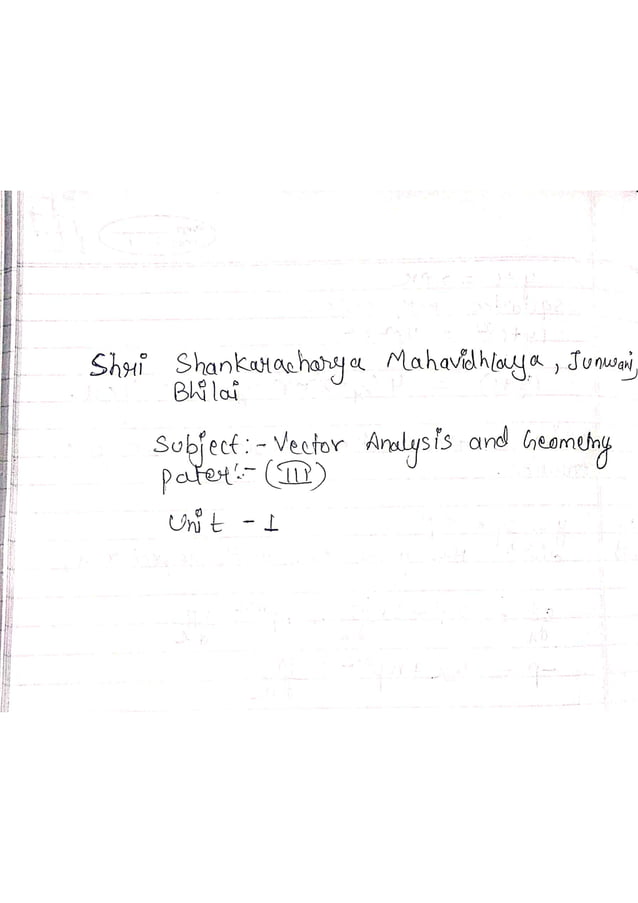 Shri Shankaracharya Mahavidhlaya, Junwani,
Bhilai
Subject:- Vector Analysis and Geometry
pater:- (III)
Unit - 1